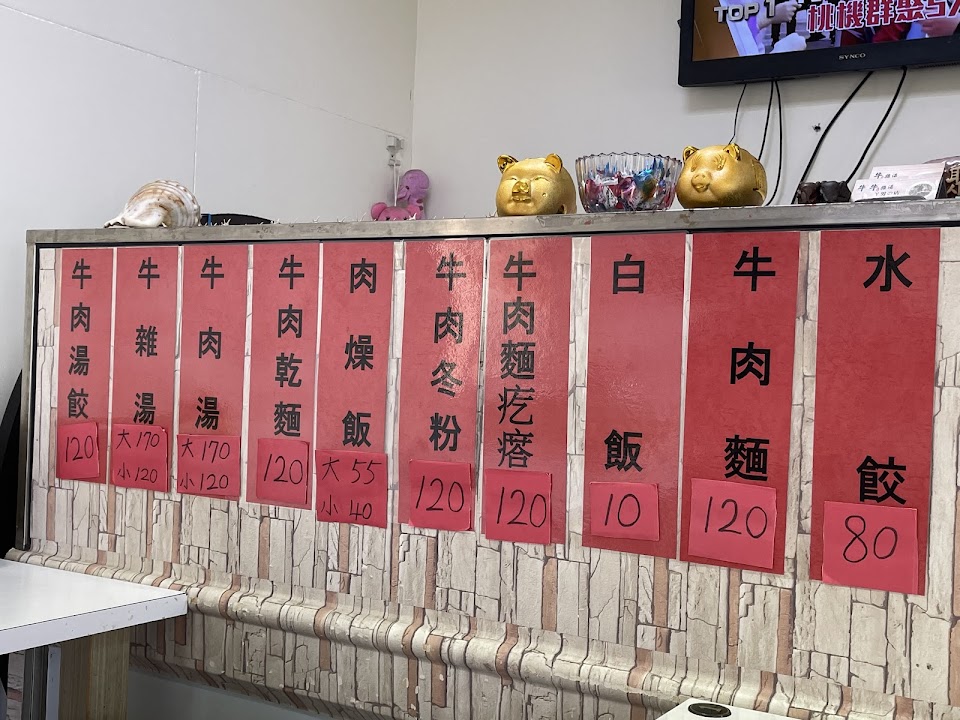 TOP 1
桃機群聚5
SYNCO
水餃
80
牛肉麵
120
白飯
10
牛肉麵疙瘩
120
牛肉冬粉
120
肉燥飯
大 55
小 40
牛肉乾麵
120
牛肉湯
大 170
小 120
牛雜湯
大 170
小 120
牛肉湯餃
120